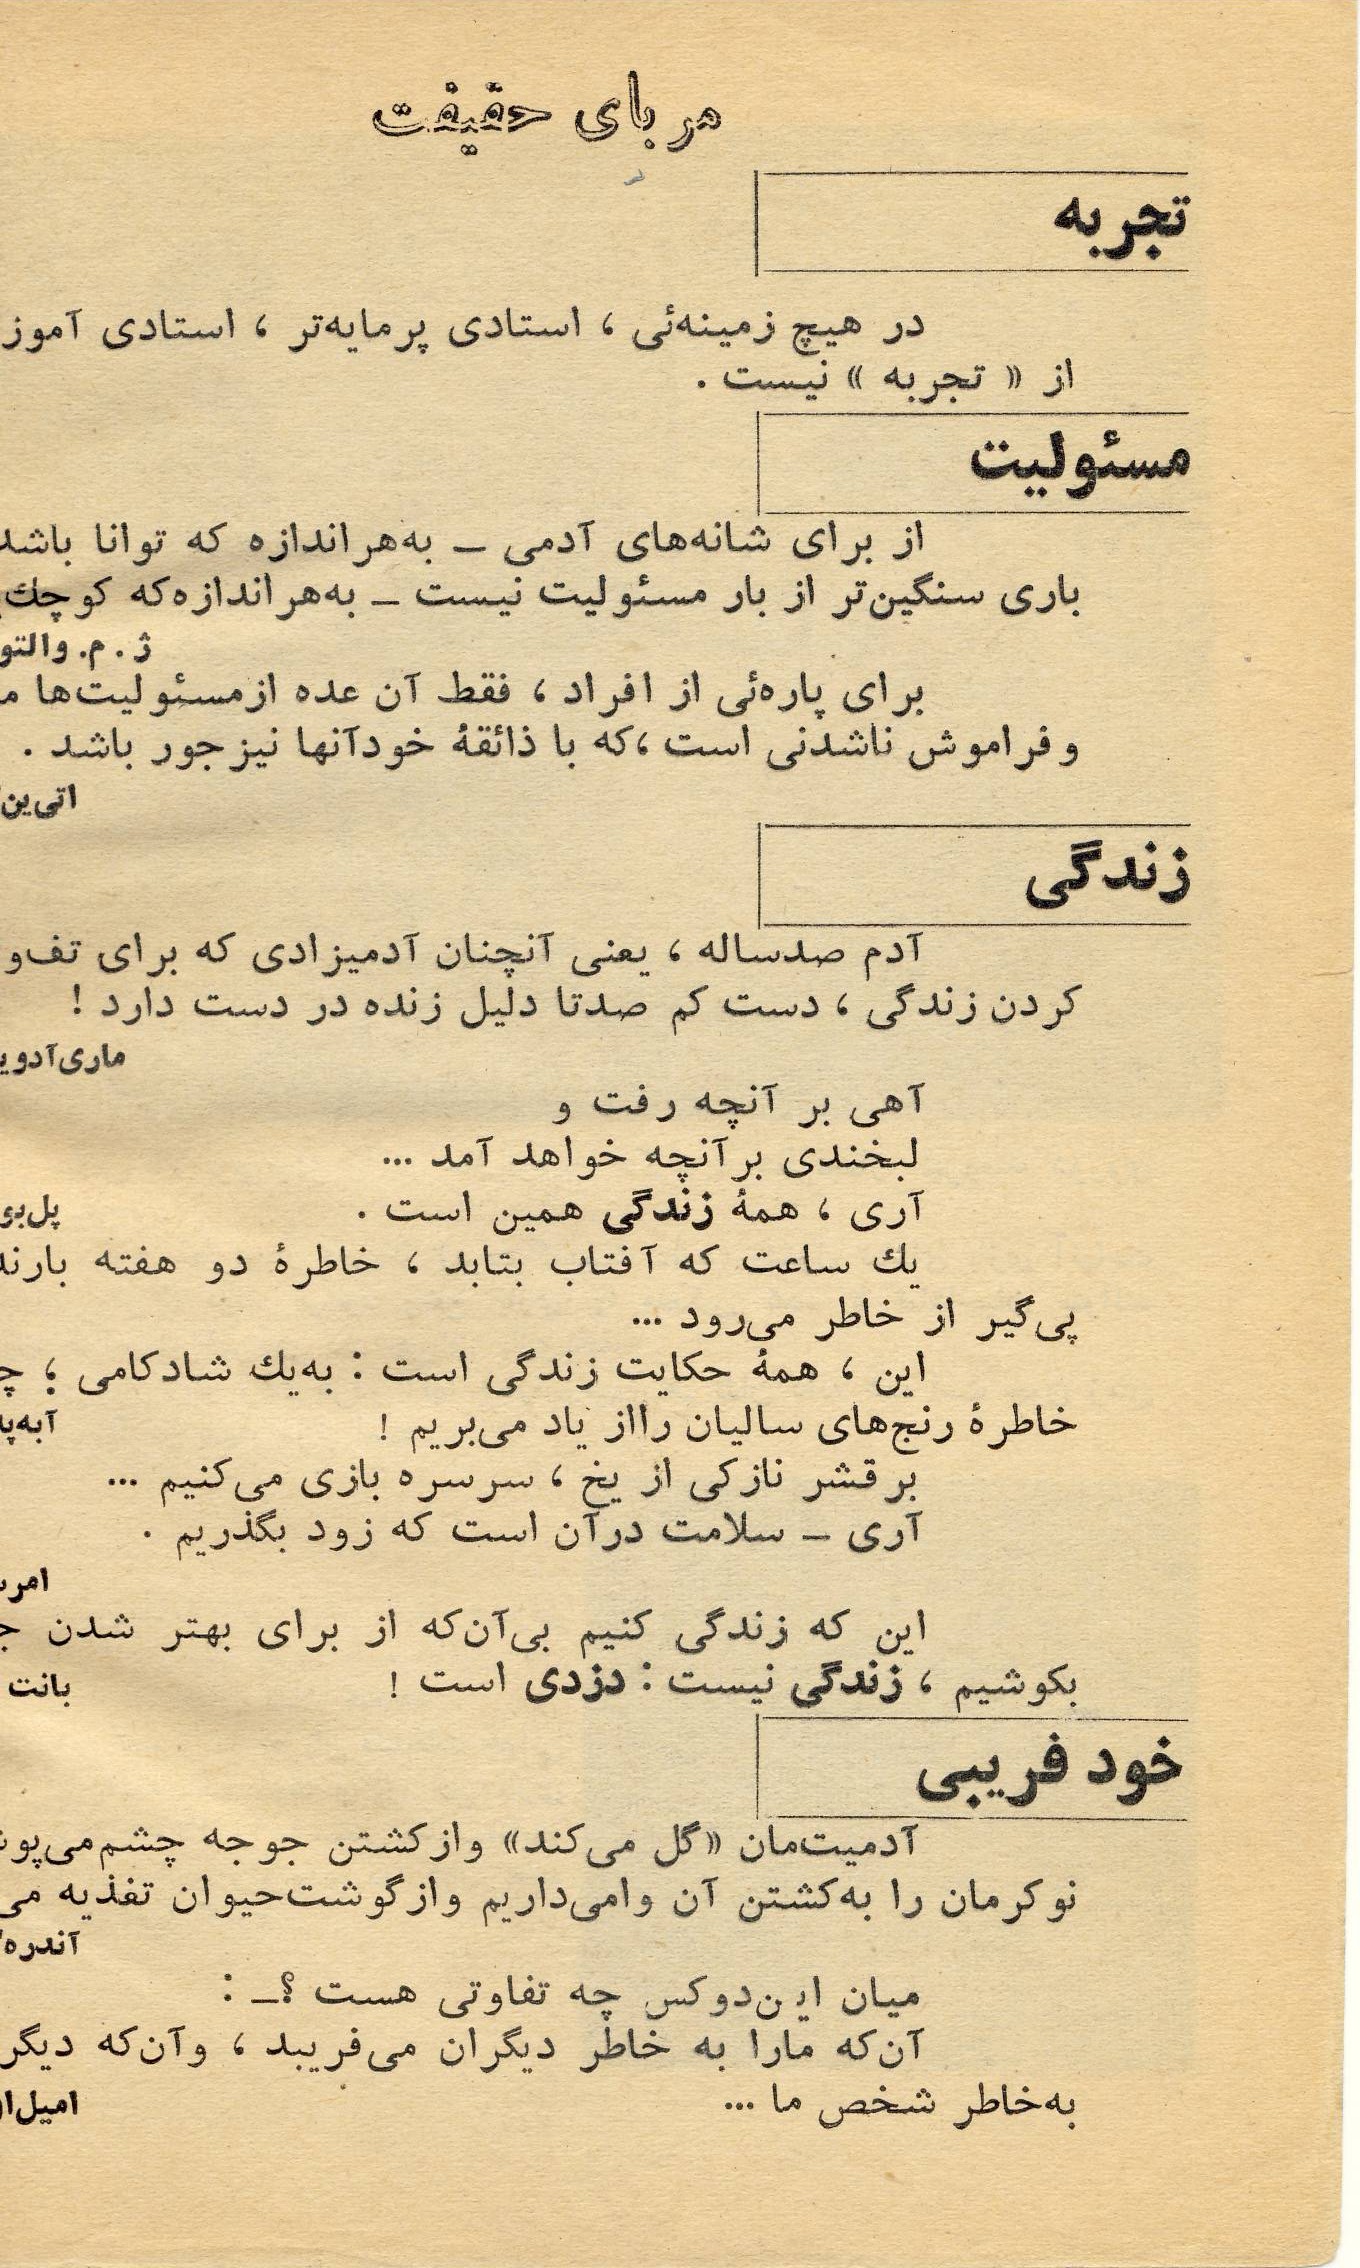 مربای حقیقت
تجربه
در هیچ زمینه‌ئی ، استادی پرمایه‌تر ، استادی آموز
از « تجربه » نیست .
مسئولیت
از برای شانه‌های آدمی ـ به‌هراندازه که توانا باشد
باری سنگین‌تر از بار مسئولیت نیست ـ به‌هراندازه‌که کوچك
ژ . م. والتو
برای پاره‌ئی از افراد ، فقط آن عده ازمسئولیت‌ها
وفراموش ناشدنی است ،که با ذائقهٔ خودآنها نیزجور باشد .
اتی‌ین
زندگی
آدم صدساله ، یعنی آنچنان آدمیزادی که برای تف‌و
کردن زندگی ، دست کم صدتا دلیل زنده در دست دارد !
ماری‌آدوی
آهی بر آنچه رفت و
لبخندی برآنچه خواهد آمد ...
آری ، همهٔ زندگی همین است .
پل‌بو
یك ساعت که آفتاب بتابد ، خاطرهٔ دو هفته بارند
پی‌گیر از خاطر می‌رود ...
این ، همهٔ حکایت زندگی است : به‌یك شادکامی ،
خاطرهٔ رنج‌های سالیان رااز یاد می‌بریم !
آبه‌پ
برقشر نازکی از یخ ، سرسره بازی می‌کنیم ...
آری ـ سلامت درآن است که زود بگذریم .
امر
این که زندگی کنیم بی‌آن‌که از برای بهتر شدن
بکوشیم ، زندگی نیست : دزدی است !
بانت
خود فریبی
آدمیت‌مان «گل می‌کند» وازکشتن جوجه چشم‌می‌پو
نوکرمان را به‌کشتن آن وامی‌داریم وازگوشت‌حیوان تغذیه می
آندره
میان این‌دوکس چه تفاوتی هست ؟ـ :
آن‌که مارا به خاطر دیگران می‌فریبد ، وآن‌که دیگر
به‌خاطر شخص ما ...
امیل‌ا